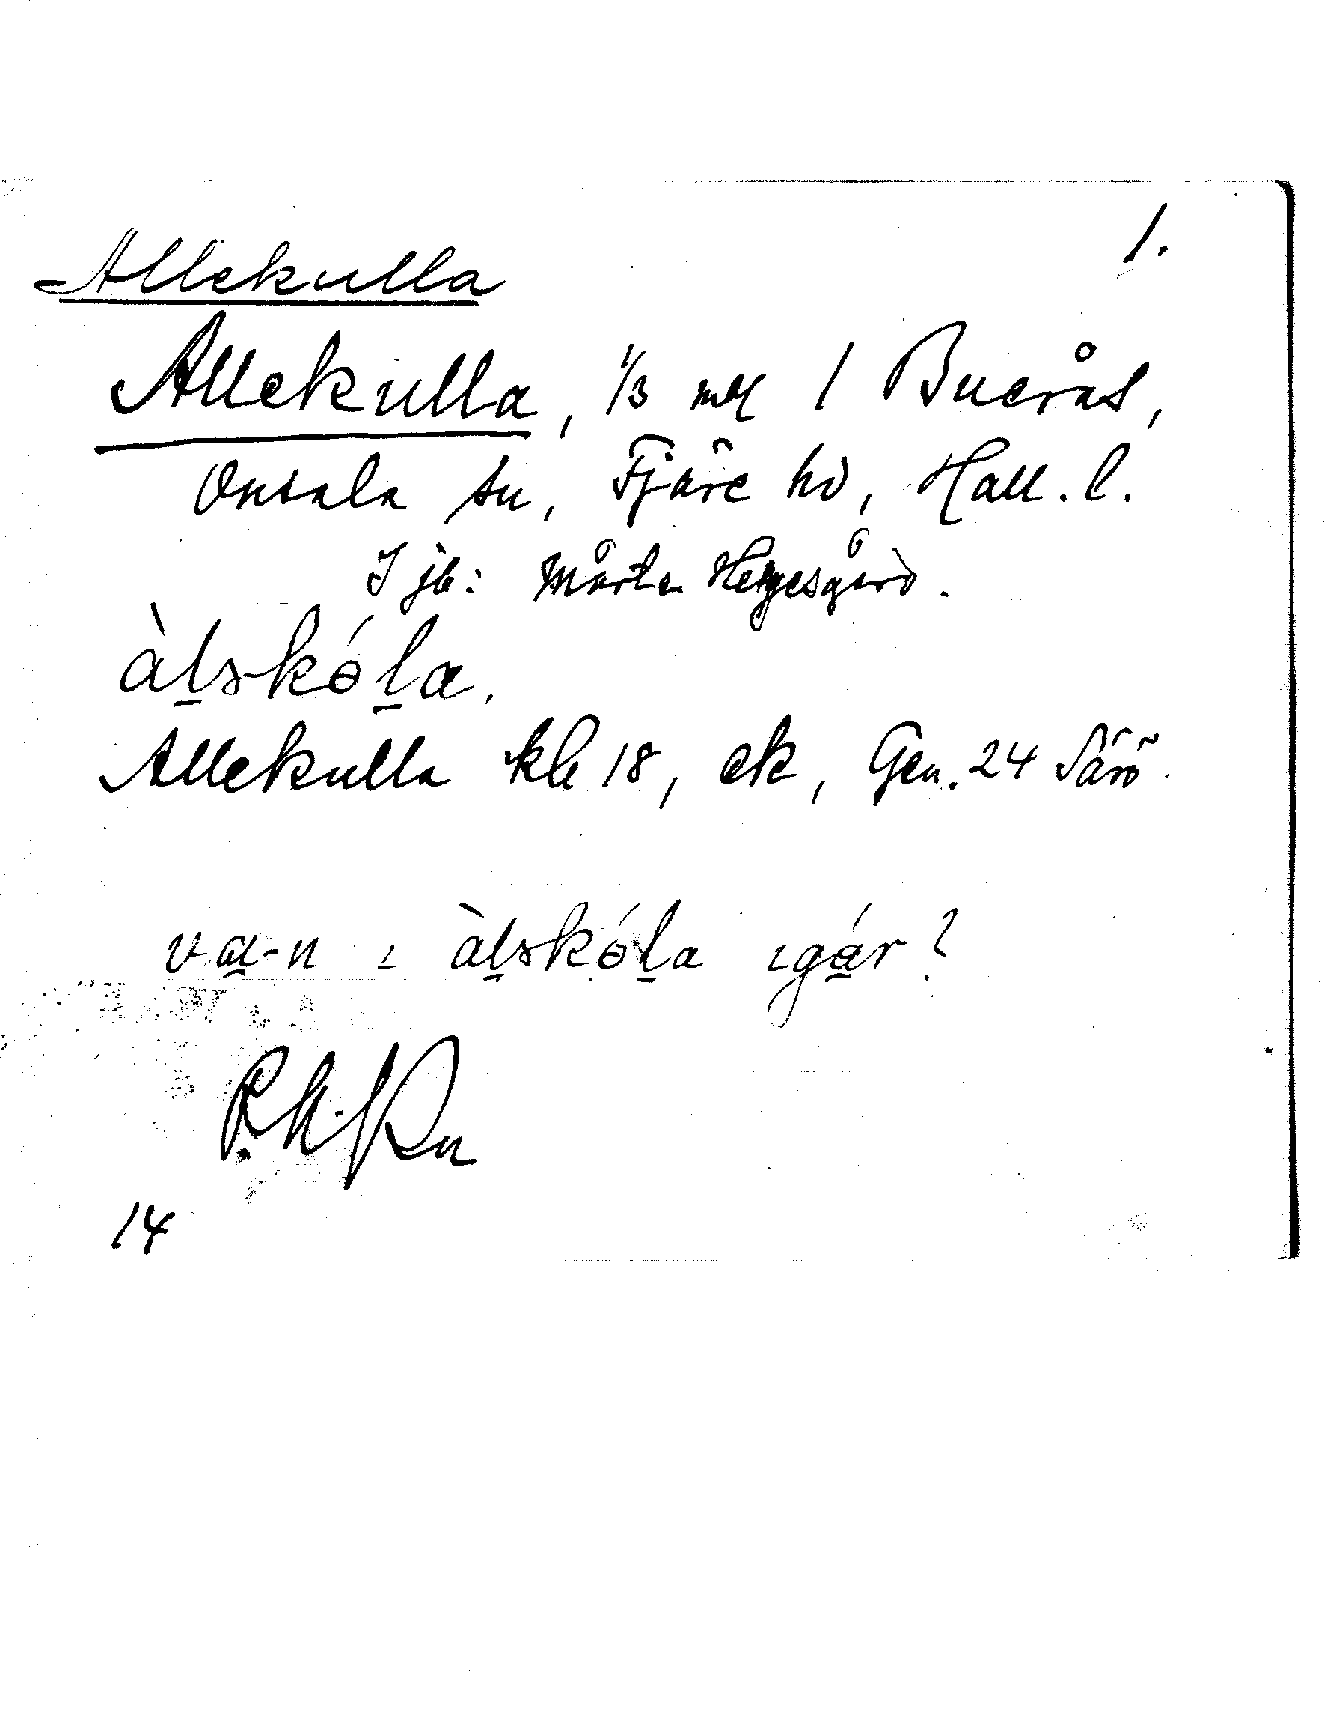 1.
Allekulla
Allekulla, 1/3 mtl 1 Bucrås,
Onsala sn, Fjäre hd, Hall. l.
I jb: Mårten Helgesgård.
àl̠skól̠a.
Allekulla kb 18, ek, Gen. 24 Särö.
va̠-n ı àl̠skól̠a ıgá̠r?
14